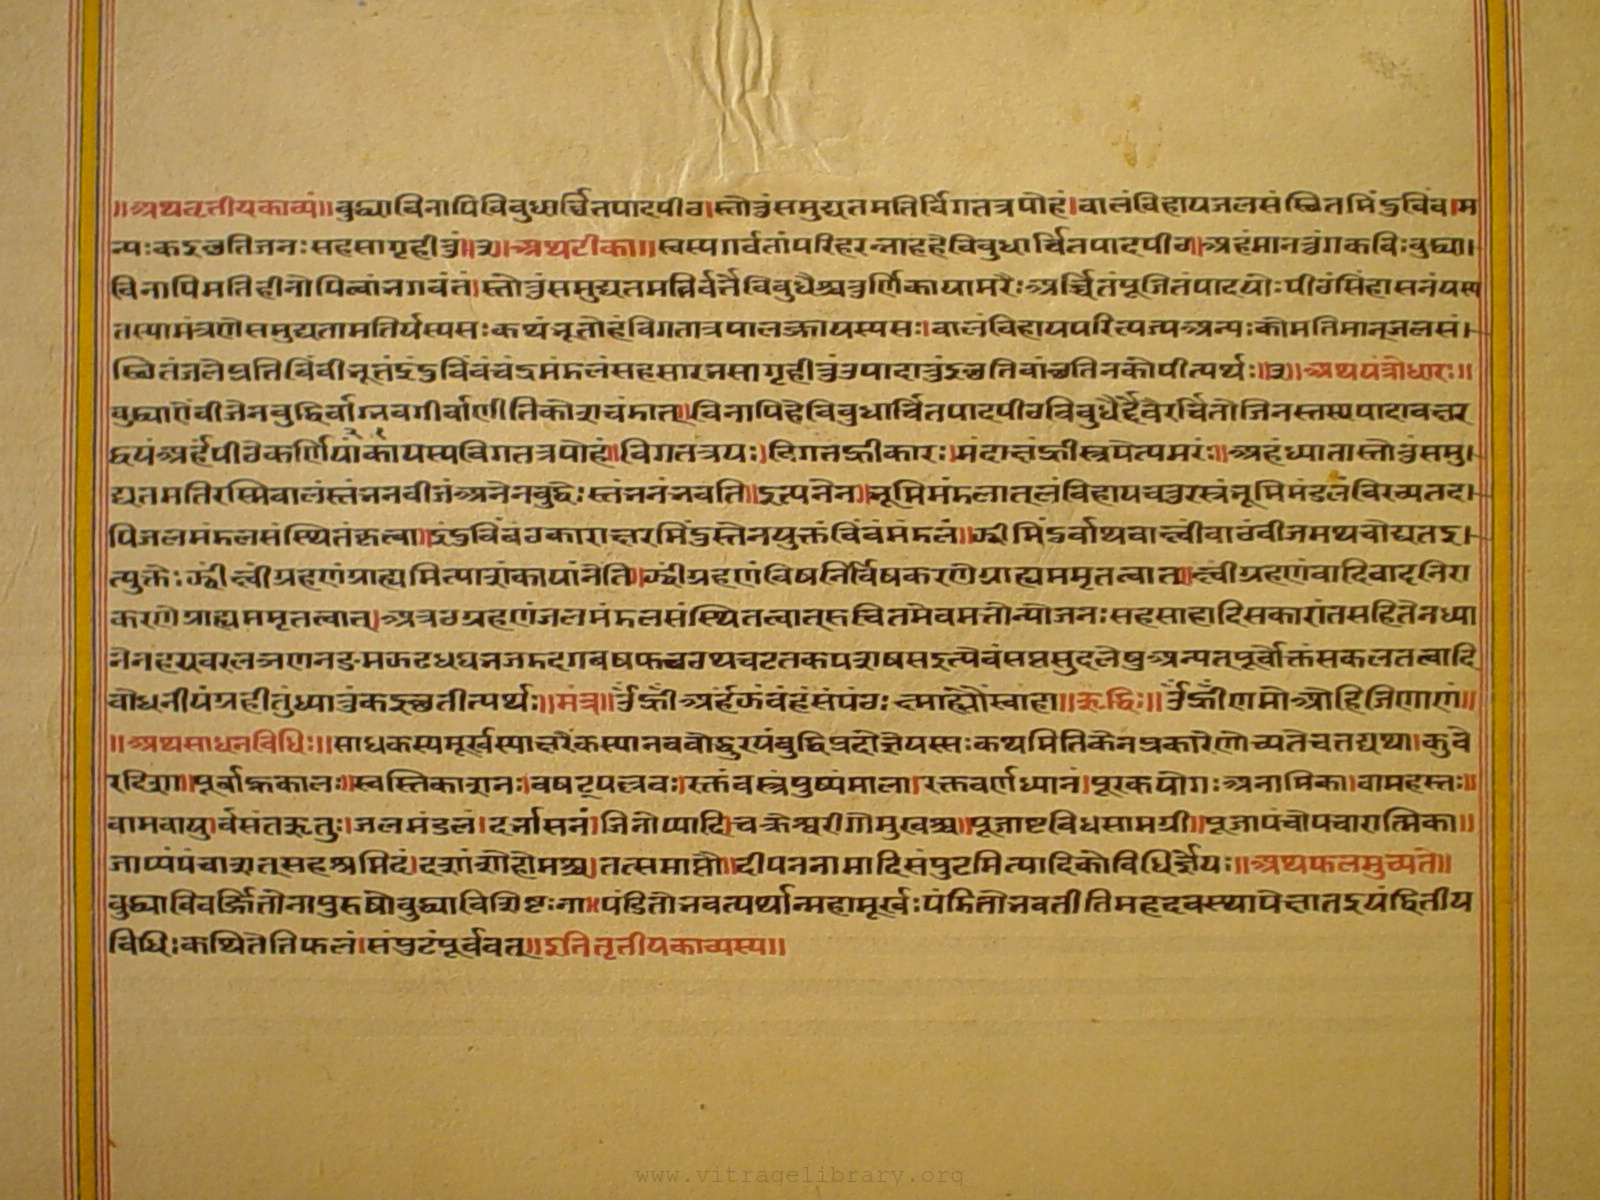 ॥अथतृतीयकाव्यं॥बुद्ध्याविनापिविबुधार्च्चितपादपीठ।स्तोतुंसमुद्यतमतिर्विगतत्रपोहं।बालंविहायजलसंस्थितमिंदुबिंब।म
न्यःकइच्छतिजनःसहसागृहीतुं॥३॥अथटीका॥स्वस्यगर्वतांपरिहरन्नाहहेविबुधार्चितपादपीठ।अहंमानतुंगकविःबुद्ध्या।
विनापिमतिहीनोपित्वांभगवंतं।स्तोतुंसमुद्यतमविबुधैश्चतुर्णिकायामरैःअर्च्चितंपूजितंपादयोःपीठंसिंहासनंयस्य
तस्यामंत्रणेसमुद्यतामतिर्यस्यसःकथंभूतोहंविगतात्रपालज्जायस्यसः।बालंविहायपरित्यज्यअन्यःकोमतिमान्जलसं।
स्थितंजलेप्रतिबिंबीभूतंइंदुबिंबंचंद्रमंडलंसहसारभसागृहीतुंउपादातुंइच्छतिवांछतिनकोपीत्यर्थः॥३॥अथयंत्रोधारः॥
बुद्ध्याऐंबीजेनबुद्धिर्वाग्भवगीर्वाणीतिकोशचंमात्।विनापिहेविबुधार्चितपादपीठविबुधैर्देवैरर्चितोजिनस्तस्यपादावक्षर
द्वयंअर्हंपीठेकर्णिकायांयस्यविगतत्रपोहं॥विगतत्रयः।विगतह्रीकारः।मंदाक्षंह्रीस्त्रपेत्यमरः॥अहंध्यातास्तोतुंसमु।
द्यतमतिरस्मिबालंस्तंभनबीजंअनेनबुद्धेःस्तंभनंभवति॥इत्यनेन।भूमिमंडलात्लंविहायचतुरस्रंभूमिमंडलंविरच्यतद।
पिजलमंडलसंस्थितंकृत्वा॥इंदुबिंबंठकाराक्षरमिंदुस्तेनयुक्तंबिंबंमंडलं॥झ्रीमिंदुर्वाथवाक्ष्वींवाठंबीजमथचोद्यतइ।
त्युक्तेःग्रहणंग्राह्यमित्याशंकायांनेति।ग्रहणंविषनिर्विषकरणेग्राह्यममृतत्वात्।क्ष्वींग्रहणंवादिवादनिरा
करणेग्राह्यममृतत्वात्।अत्रठग्रहणंजलमंडलसंस्थितत्वात्सचितमेवमतोन्योजनःसहसाहादिसकारांतसहितेनध्या
नेनहयवरलञणनङमझढधघभजडदगबषफछठथचटतकपशषसइत्येवंसप्तसुदलेषुअन्यत्पूर्वोक्तंसकलतत्वादि
बोधनीयंग्रहीतुंध्यातुंकइच्छतीत्यर्थः॥मंत्र॥ॐह्रींअर्हंझंवंहंसंपंठःस्वाहा॥ऋद्धिः॥ॐह्रींणमोओहिजिणाणं॥
॥अथसाधनविधिः॥साधकस्यमूर्खस्याक्षरैकस्यानवबोद्धुरयंबुद्धिप्रदोज्ञेयस्सःकथमितिकेनप्रकारेणोच्यतेचतद्यथा।कुबे
रदिशा॥पूर्वाह्नकालः॥स्वस्तिकाशनः।वषट्पल्लवः।रक्तंवस्त्रंपुष्पंमाला।रक्तवर्णध्यानं।पूरकयोगःअनामिका।वामहस्तः॥
वामवायु।र्वसंतऋतुः।जलमंडलं।दर्भासनं।जिनोप्यादि।चक्रेश्वरीगोमुखश्च॥पूजाष्टविधसामग्री॥पूजापंचोपचारात्मिका॥
जाप्यंपंचाशत्सहश्रमिदं।दशांशोहोमश्च।तत्समाप्तौ॥दीपननामादिसंपुटमित्यादिकोविधिर्ज्ञेयः॥अथफलमुच्यते॥
बुद्ध्याविवर्जितोनापुरुषोबुद्ध्याविशिष्टःनापंडितोभवत्यर्थान्महामूर्खःपंडितोभवतीतिमहदवस्थापेक्षातइयंद्वितीय
विधिःकथितेतिफलं।संपुटंपूर्ववत्॥इतितृतीयकाव्यस्य॥
www.vitragelibrary.org